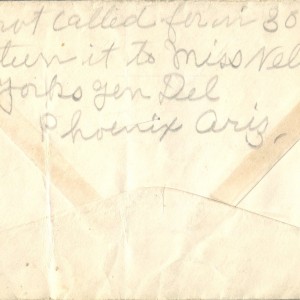 not called for in 30
turn it to Miss Nel
Yorks Gen Del
Phoenix Ariz.